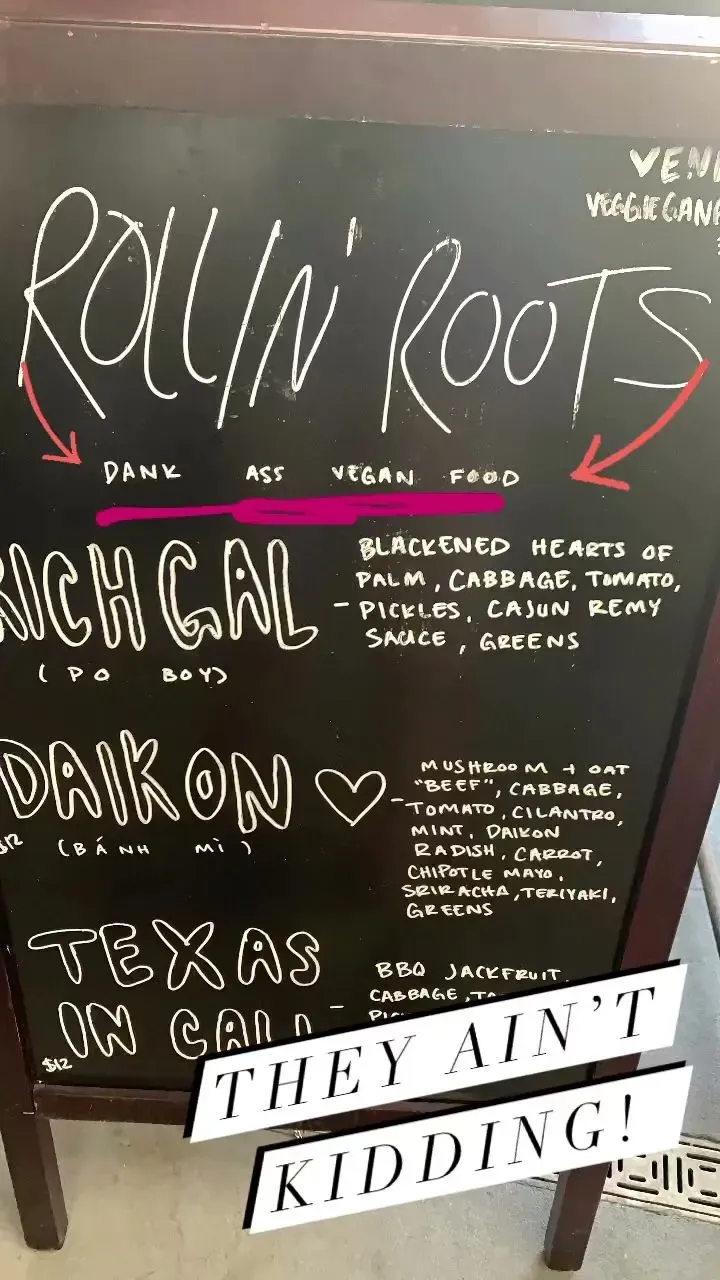 ROLLIN' ROOTS
DANK ASS VEGAN FOOD
RICH GAL
(PO BOY)
- BLACKENED HEARTS OF
PALM, CABBAGE, TOMATO,
PICKLES, CAJUN REMY
SAUCE, GREENS
DAIKON ♡
$12
(BÁNH MÌ)
- MUSHROOM + OAT
"BEEF", CABBAGE,
TOMATO, CILANTRO,
MINT, DAIKON
RADISH, CARROT,
CHIPOTLE MAYO,
SRIRACHA, TERIYAKI,
GREENS
TEXAS
IN CALI
$12
- BBQ JACKFRUIT
CABBAGE,
THEY AIN'T
KIDDING!